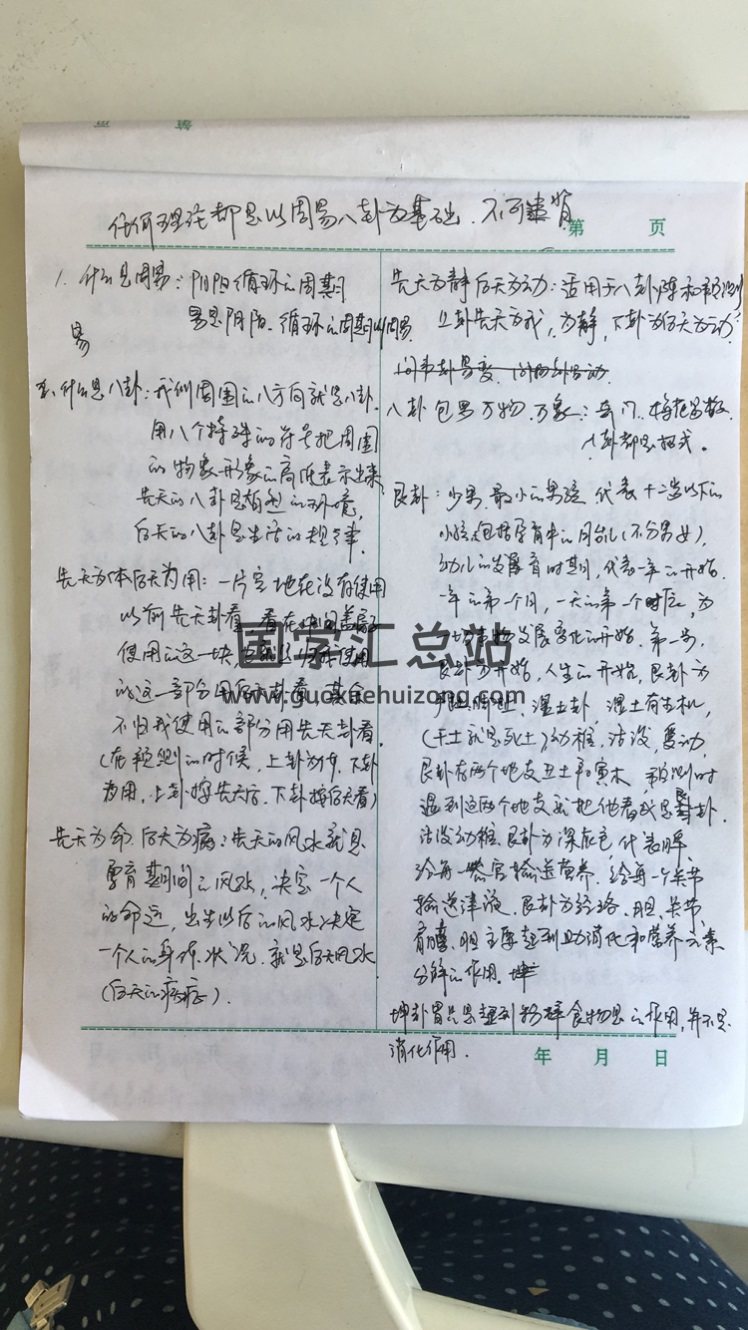 任何理论都是以周易八卦为基础、不可违背
第 页
1. 什么是周易：阴阳循环的周期
易是阴阳、循环的周期以周易
易
什么是八卦：我们周围的八方向就是八卦、
用八个特殊的符号把周围
的物象形象的高低表示出来，
先天的八卦是的环境，
后天的八卦是生活的规律．
先天为体后天为用：一片空地在没有使用
以前先天卦看、看在中间盖房子
使用的这一块，使用
的这一部分用后天卦看、其余
不归我使用的部分用先天卦看．
（在预测的时候，上卦为体、下卦
为用，上卦按先天看、下卦按后天看）
先天为命、后天为病：先天的风水就是
孕育期间的风水，决定一个人
的命运，出生以后的风水决定
一个人的身体状况．就是后天风水
（后天的病症）．
先天为静后天为动：适用于八卦阵和预测
上卦先天为我，为静，下卦为后天为动
八卦包罗万物、万象：奇门、梅花易数、
八卦都是招式。
艮卦：少男、最小的男孩、代表十二岁以下的
小孩包括孕育中的胎儿（不分男女），
幼儿的发展育时期，代表一年的开始．
一年的第一个月，一天的第一个时辰，为
一切事物发展变化的开始、第一步，
艮卦为开始，人生的开始，艮卦为
脚趾、湿土卦、湿土有生机，
（干土就是死土）幼稚，活泼，爱动，
艮卦有两个地支丑土和寅木 预测时
遇到这两个地支要把他看成是艮卦．
活泼幼稚、艮卦为深灰色，代表脾，
给每一器官输送营养，给每一个关节
输送津液、艮卦为经络、胆、关节，
胆主要起到助消化和营养元素
分解的作用．坤
坤卦胃只是起到粉碎食物的作用，并不是
消化作用．
年 月 日
国学汇总站
www.guoxuehuizong.com